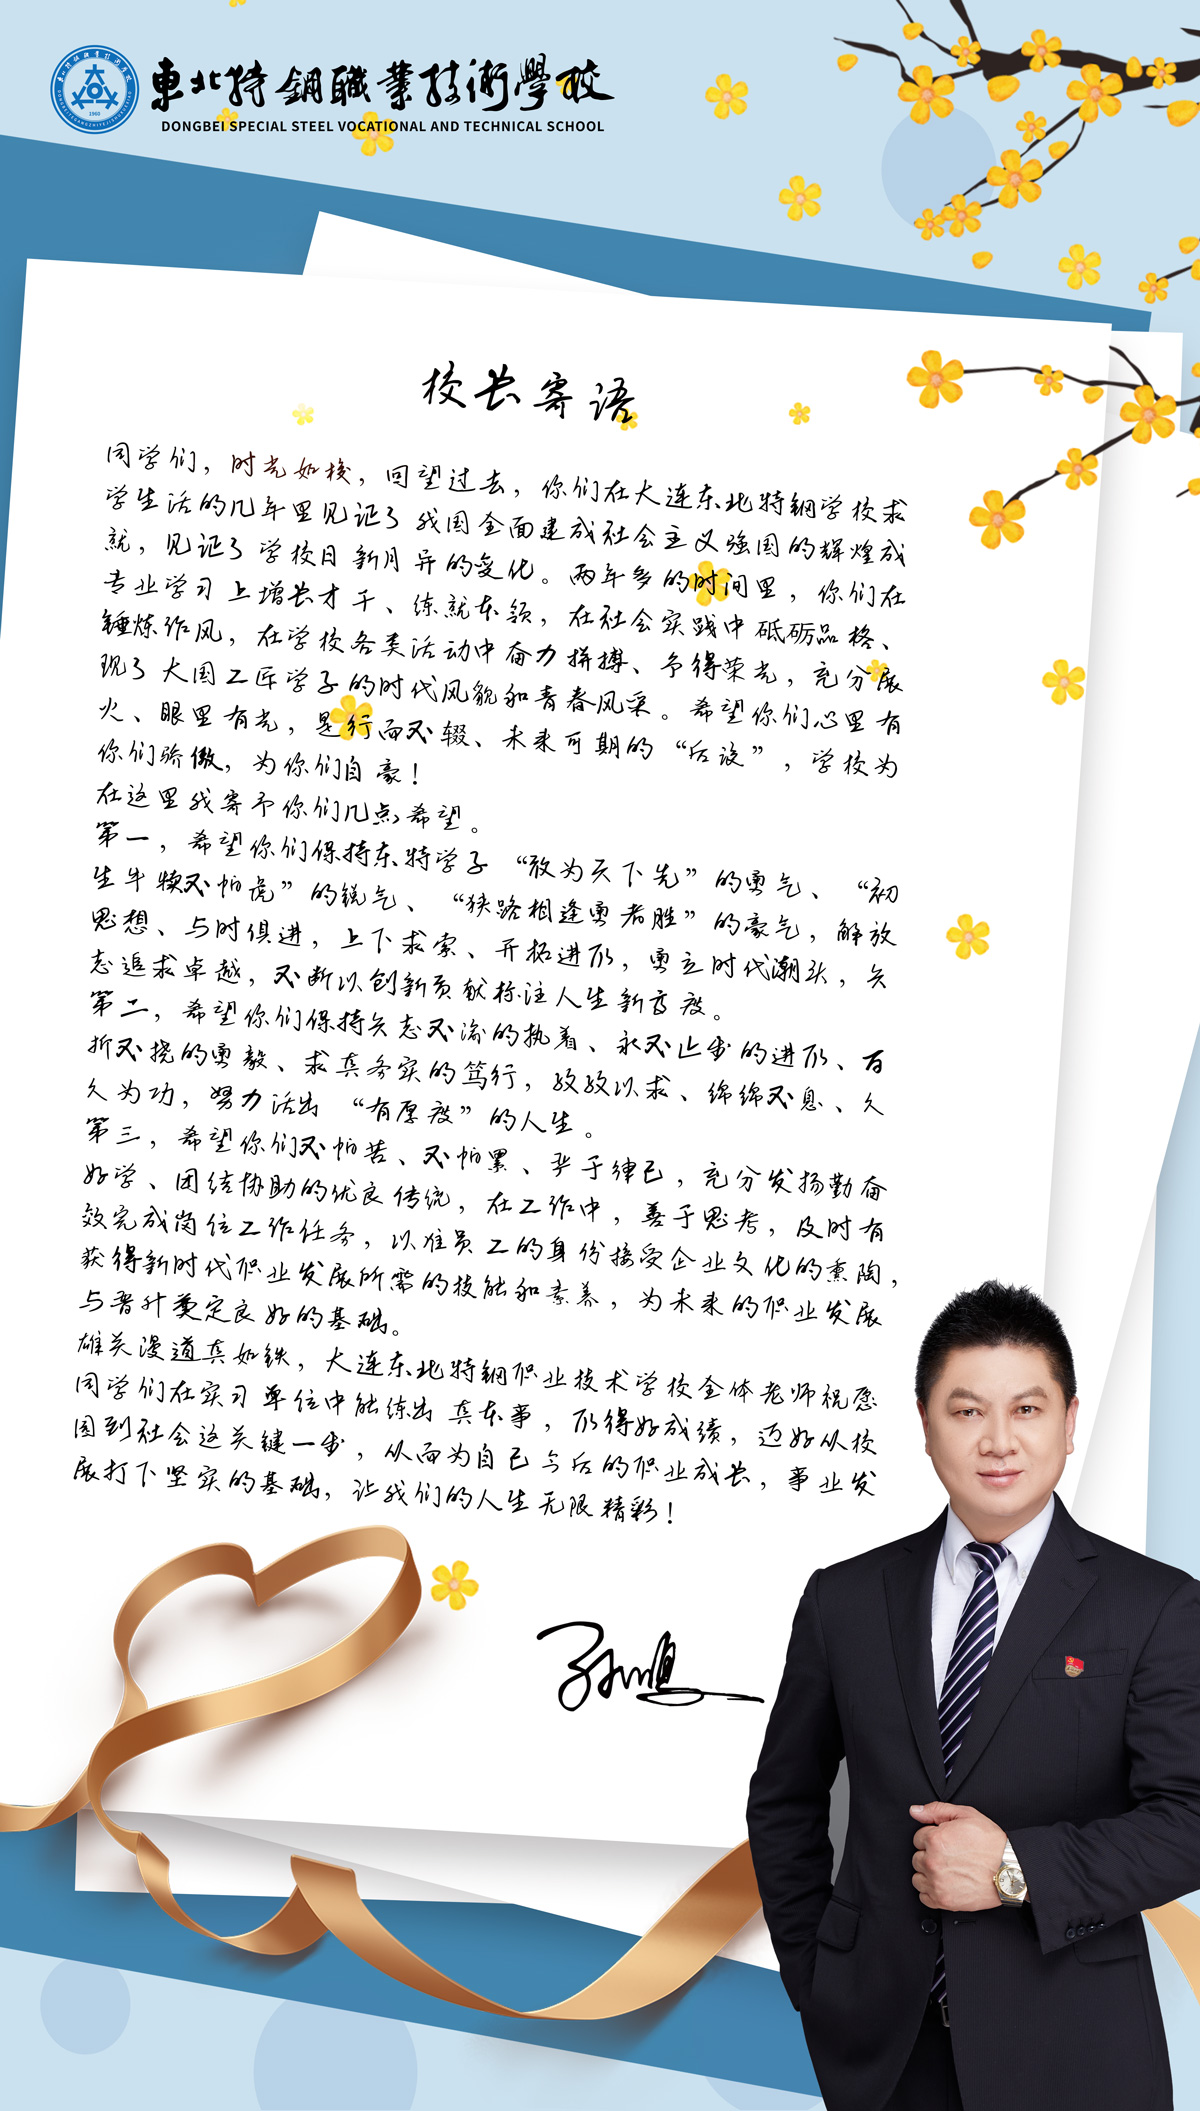 東北特鋼職業技術學校
DONGBEI SPECIAL STEEL VOCATIONAL AND TECHNICAL SCHOOL
1960
校长寄语
同学们，时光如梭，回望过去，你们在大连东北特钢学校求
学生活的几年里见证了我国全面建成社会主义强国的辉煌成
就，见证了学校日新月异的变化。两年多的时间里，你们在
专业学习上增长才干、练就本领，在社会实践中砥砺品格、
锤炼作风，在学校各类活动中奋力拼搏、争得荣光，充分展
现了大国工匠学子的时代风貌和青春风采。希望你们心里有
火、眼里有光，是行而不辍、未来可期的“后浪”，学校为
你们骄傲，为你们自豪！
在这里我寄予你们几点希望。
第一，希望你们保持东特学子“敢为天下先”的勇气、“初
生牛犊不怕虎”的锐气、“狭路相逢勇者胜”的豪气，解放
思想、与时俱进，上下求索、开拓进取，勇立时代潮头，矢
志追求卓越，不断以创新贡献标注人生新高度。
第二，希望你们保持矢志不渝的执着、永不止步的进取、百
折不挠的勇毅、求真务实的笃行，孜孜以求、绵绵不息、久
久为功，努力活出“有厚度”的人生。
第三，希望你们不怕苦、不怕累、严于律己，充分发扬勤奋
好学、团结协助的优良传统，在工作中，善于思考，及时有
效完成岗位工作任务，以准员工的身份接受企业文化的熏陶，
获得新时代职业发展所需的技能和素养，为未来的职业发展
与晋升奠定良好的基础。
雄关漫道真如铁，大连东北特钢职业技术学校全体老师祝愿
同学们在实习单位中能练出真本事，取得好成绩，迈好从校
园到社会这关键一步，从而为自己今后的职业成长，事业发
展打下坚实的基础，让我们的人生无限精彩！